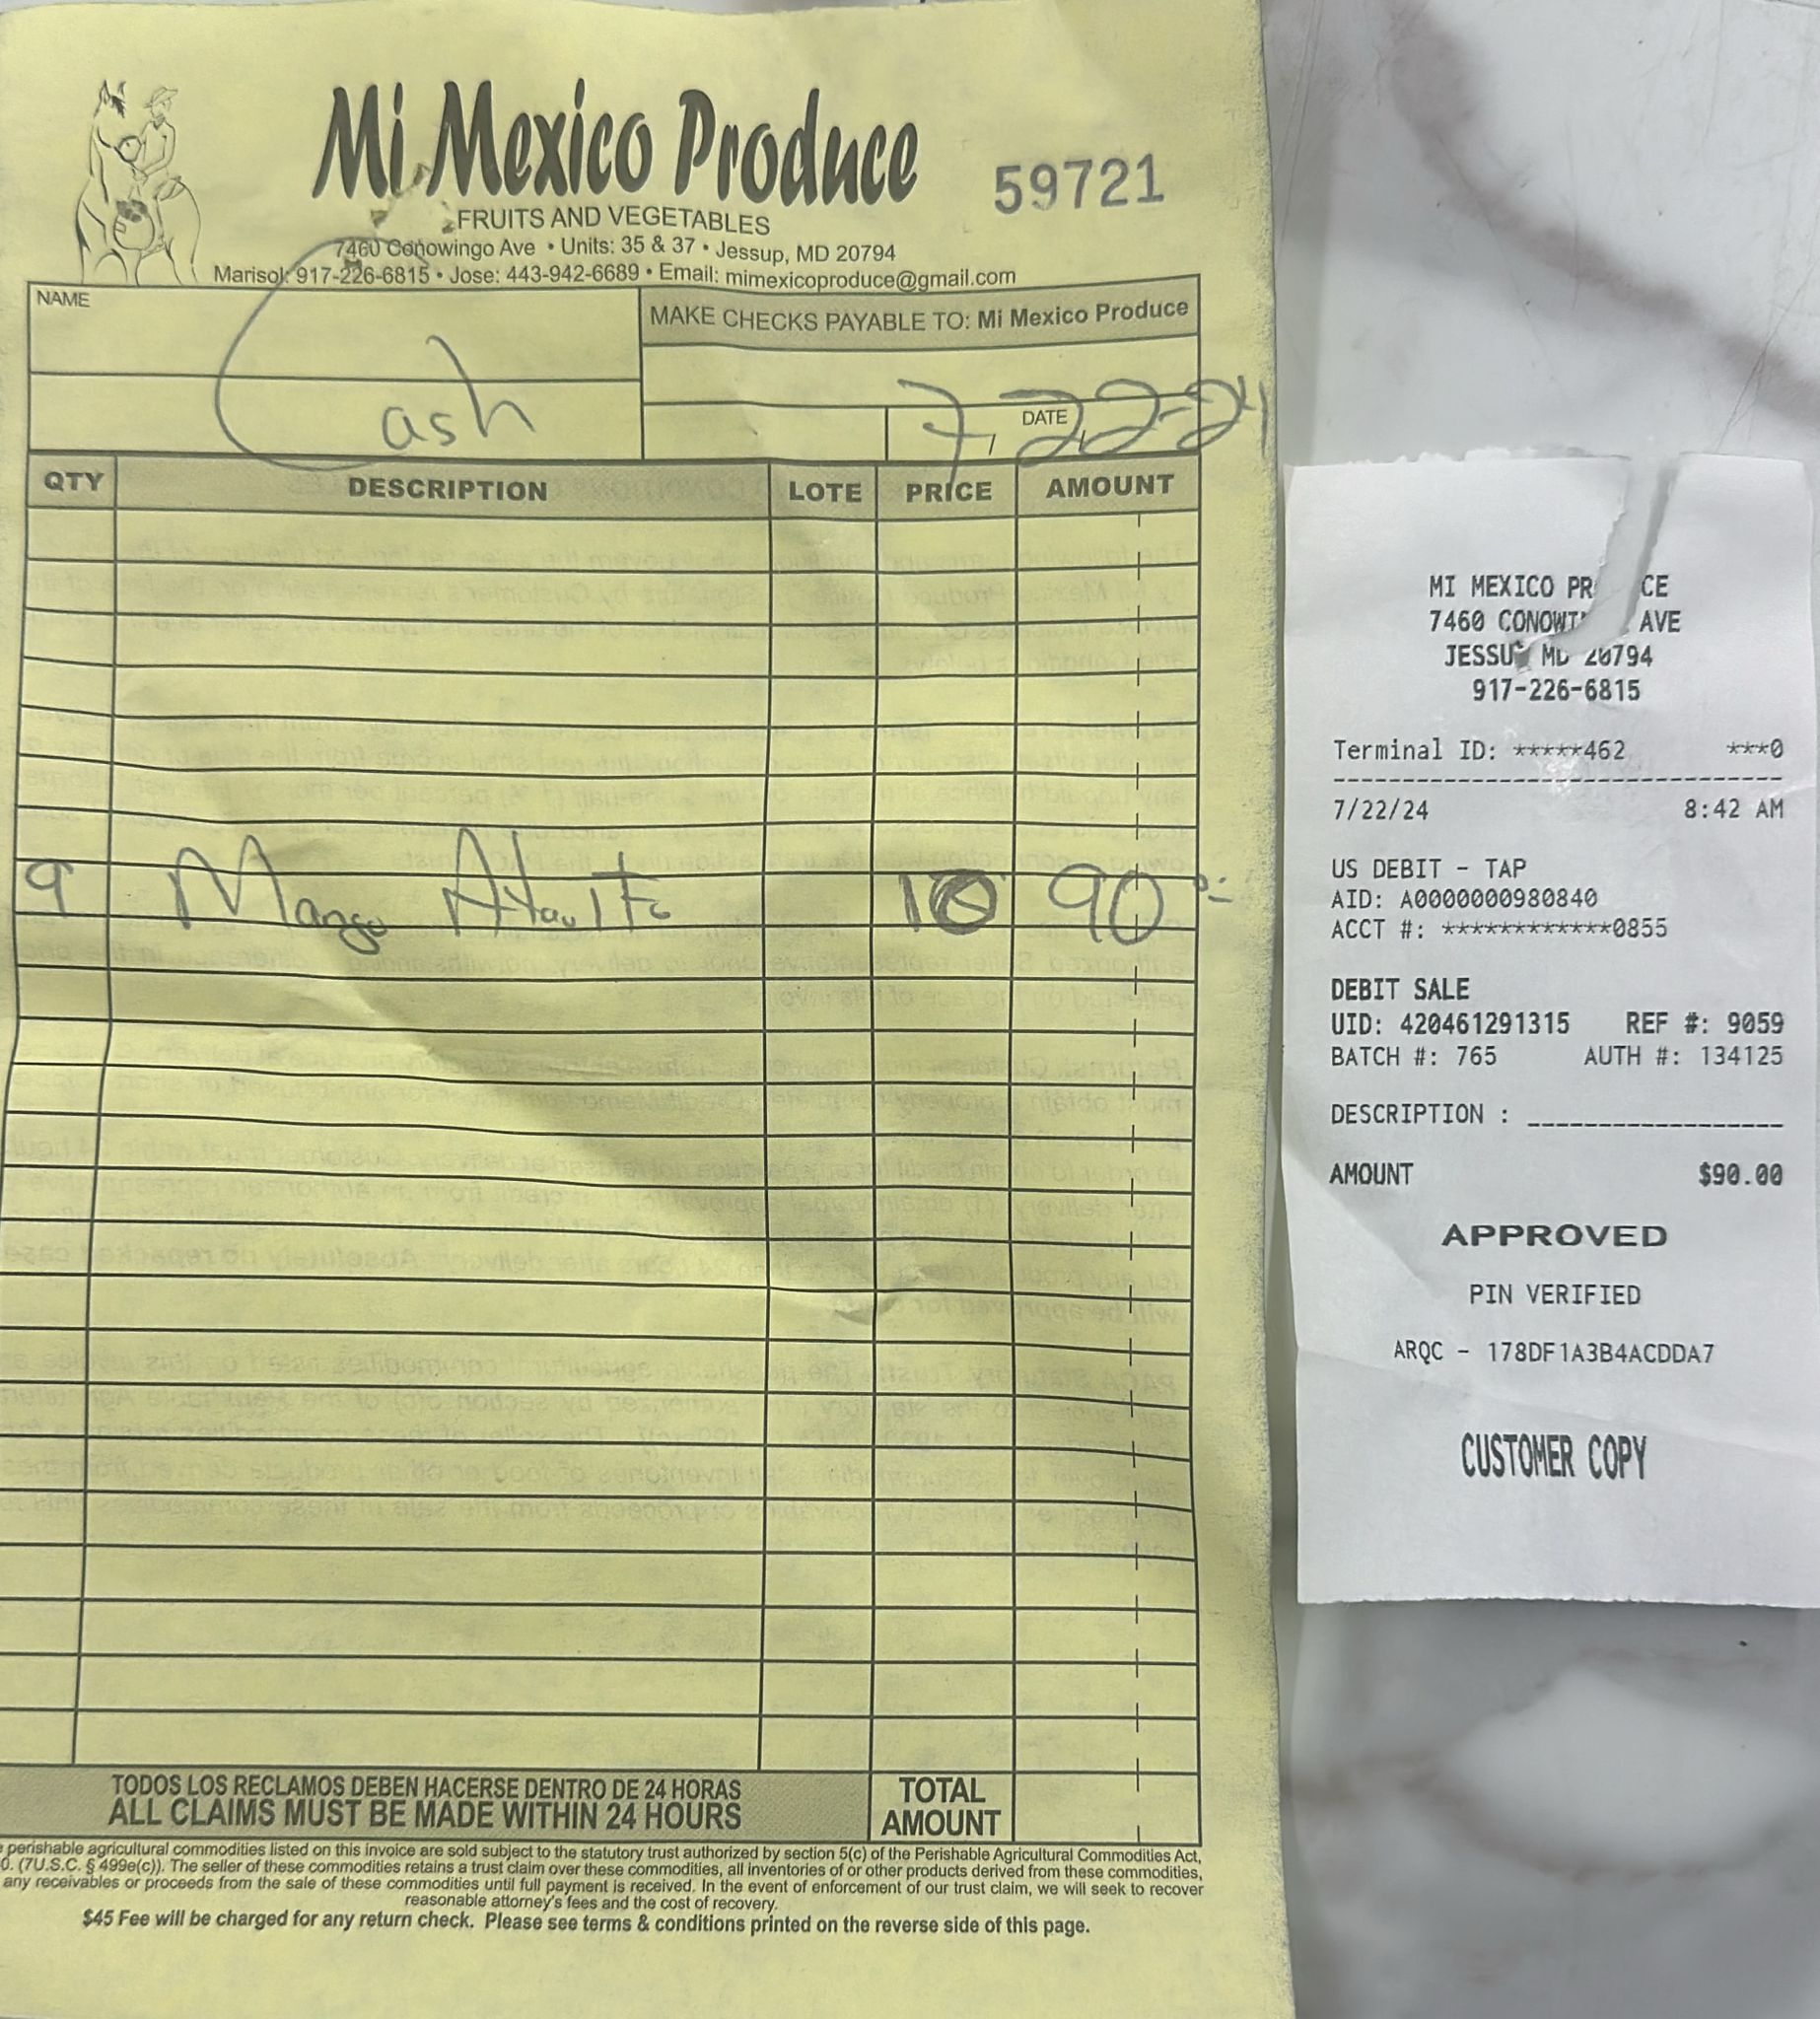 Mi Mexico Produce
59721
FRUITS AND VEGETABLES
7460 Conowingo Ave • Units: 35 & 37 • Jessup, MD 20794
Marisol: 917-226-6815 • Jose: 443-942-6689 • Email: mimexicoproduce@gmail.com
NAME
Cash
MAKE CHECKS PAYABLE TO: Mi Mexico Produce
DATE
7-22-24
QTY DESCRIPTION LOTE PRICE AMOUNT
9 Mango Ataulfo 10 90
TODOS LOS RECLAMOS DEBEN HACERSE DENTRO DE 24 HORAS
ALL CLAIMS MUST BE MADE WITHIN 24 HOURS
TOTAL
AMOUNT
perishable agricultural commodities listed on this invoice are sold subject to the statutory trust authorized by section 5(c) of the Perishable Agricultural Commodities Act,
0. (7U.S.C. § 499e(c)). The seller of these commodities retains a trust claim over these commodities, all inventories of or other products derived from these commodities,
any receivables or proceeds from the sale of these commodities until full payment is received. In the event of enforcement of our trust claim, we will seek to recover
reasonable attorney's fees and the cost of recovery.
$45 Fee will be charged for any return check. Please see terms & conditions printed on the reverse side of this page.
MI MEXICO PR CE
7460 CONOWI AVE
JESSU MD 20794
917-226-6815
Terminal ID: *****462 ***0
7/22/24 8:42 AM
US DEBIT - TAP
AID: A0000000980840
ACCT #: ************0855
DEBIT SALE
UID: 420461291315 REF #: 9059
BATCH #: 765 AUTH #: 134125
DESCRIPTION :
AMOUNT $90.00
APPROVED
PIN VERIFIED
ARQC - 178DF1A3B4ACDDA7
CUSTOMER COPY